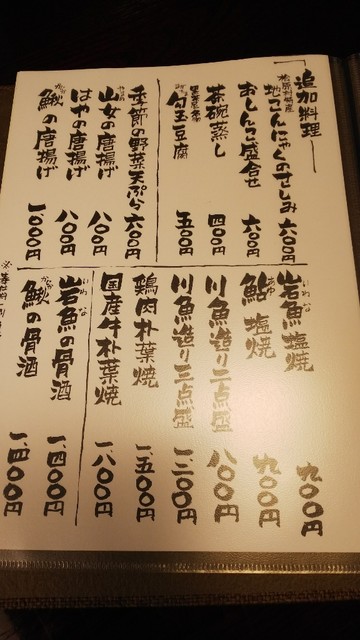 追加料理
地こんにゃくのさしみ 六〇〇円
おしんこ盛合せ 六〇〇円
茶碗蒸し 四〇〇円
勾玉豆腐 五〇〇円
季節の野菜天ぷら 六〇〇円
山女の唐揚げ 八〇〇円
はやの唐揚げ 八〇〇円
鰍の唐揚げ 一、〇〇〇円
岩魚塩焼 九〇〇円
鮎塩焼 九〇〇円
川魚造り二点盛 八〇〇円
川魚造り三点盛 一、二〇〇円
鶏肉朴葉焼 一、五〇〇円
国産牛朴葉焼 一、八〇〇円
岩魚の骨酒 一、四〇〇円
鰍の骨酒 一、四〇〇円